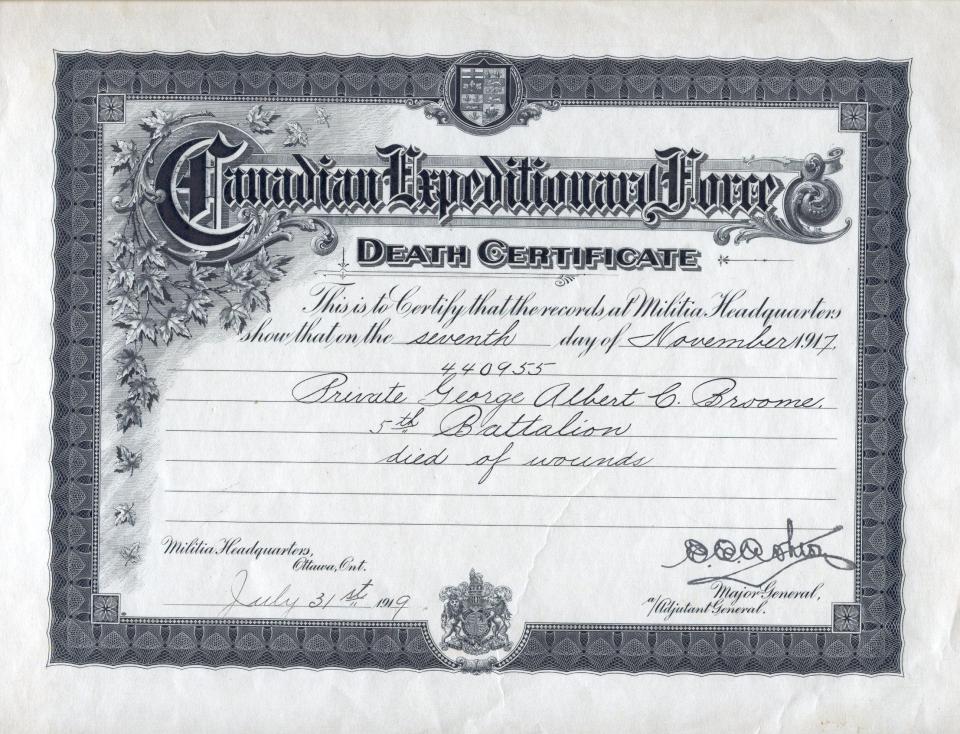 Canadian Expeditionary Force
DEATH CERTIFICATE
This is to Certify that the records at Militia Headquarters
show that on the seventh day of November 1917,
440955
Private George Albert C. Broome.
5th Battalion
died of wounds
Militia Headquarters,
Ottawa, Ont.
July 31st 1919
Major General,
a/Adjutant General.